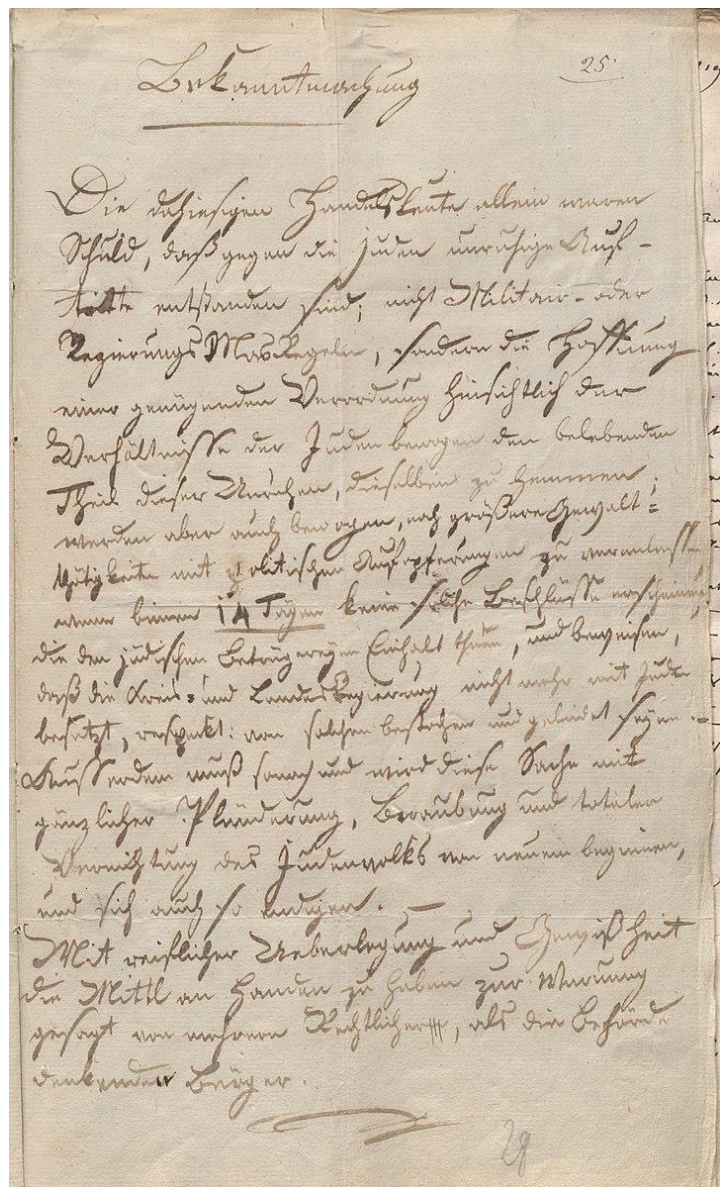 25.
Bekanntmachung
Die dahiesigen Handelsleute allein waren
Schuld, daß gegen die Juden unruhige Auf-
tritte entstanden sind; nicht Militair- oder
Regierungs Masregeln, sondern die Hoffnung
einer genügenden Verordnung hinsichtlich der
Verhältnisse der Juden bewogen den belebenden
Theil dieser Unruhen, dieselben zu hemmen;
werden aber auch bewogen, noch größere Gewalt=
thätigkeiten mit politischen Aufopferungen zu veranlassen
wenn binnen 14 Tägen keine solche Beschlüsse erscheinen,
die den jüdischen Betrügereyen Einhalt thuen, und beweisen,
daß die Kreis= und Landes Regierung nicht mehr mit Juden
besetzt, respekt: von solchen bestochen und geleitet seyen. –
Ausserdem muß sonach und wird diese Sache mit
gänzlicher Plünderung, Beraubung und totaler
Vernichtung des Judenvolks von neuem beginnen,
und sich auch so endigen. –
Mit reiflicher Ueberlegung und Gewißheit
die Mittl an Handen zu haben zur Warnung
gesagt von mehrern Rechtlicher, als die Behörde
denkenden Bürger.
28